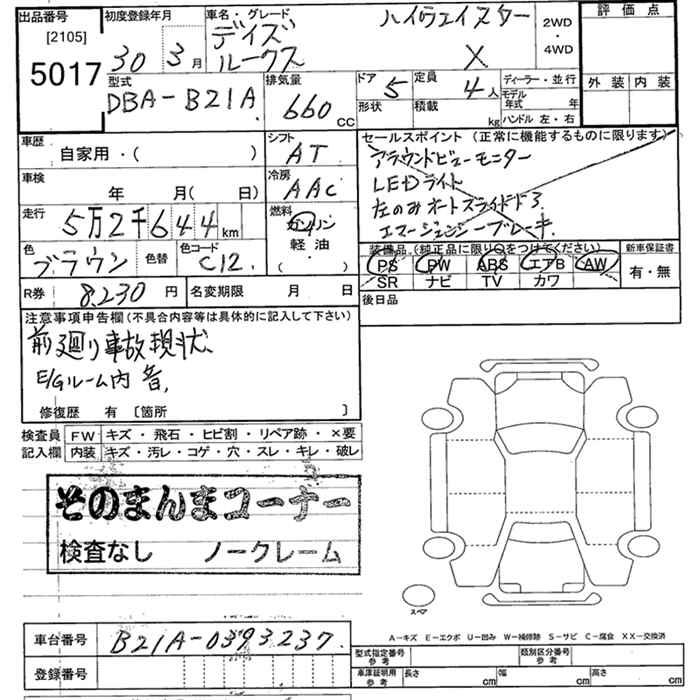 出品番号 初度登録年月 車名・グレード 評価点
[2105] デイズ ハイウェイスター 2WD・4WD
5017 30 3月 ルークス X
型式 排気量 ドア 5 定員 4人 ディーラー・並行 外装 内装
DBA-B21A 660CC 形状 積載 kg モデル年式 年
ハンドル 左・右
車歴 シフト セールスポイント (正常に機能するものに限ります)
自家用・( ) AT アラウンドビューモニター
車検 冷房 LEDライト
年 月(日) AAC 左のみオートスライドドア
走行 燃料 エマージェンシーブレーキ
5万2千644km ガソリン
色 色替 色コード 軽油 装備品(純正品に限り○をつけてください) 新車保証書
ブラウン C12 ・( ) PS PW ABS エアB AW 有・無
SR ナビ TV カワ
R券 8,230円 名変期限 月 日 後日品
注意事項申告欄(不具合内容等は具体的に記入して下さい)
前廻り事故現状、
E/Gルーム内音、
修復歴 有 [箇所 ]
検査員 FW キズ・飛石・ヒビ割・リペア跡・×要
記入欄 内装 キズ・汚レ・コゲ・穴・スレ・キレ・破レ
そのまんまコーナー
検査なし ノークレーム
スペア
A-キズ E-エクボ U-凹み W-補修跡 S-サビ C-腐食 XX-交換済
車台番号 B21A-0393237
型式指定番号 参考 類別区分番号 参考
登録番号
車庫証明用 参考 長さ cm 幅 cm 高さ cm